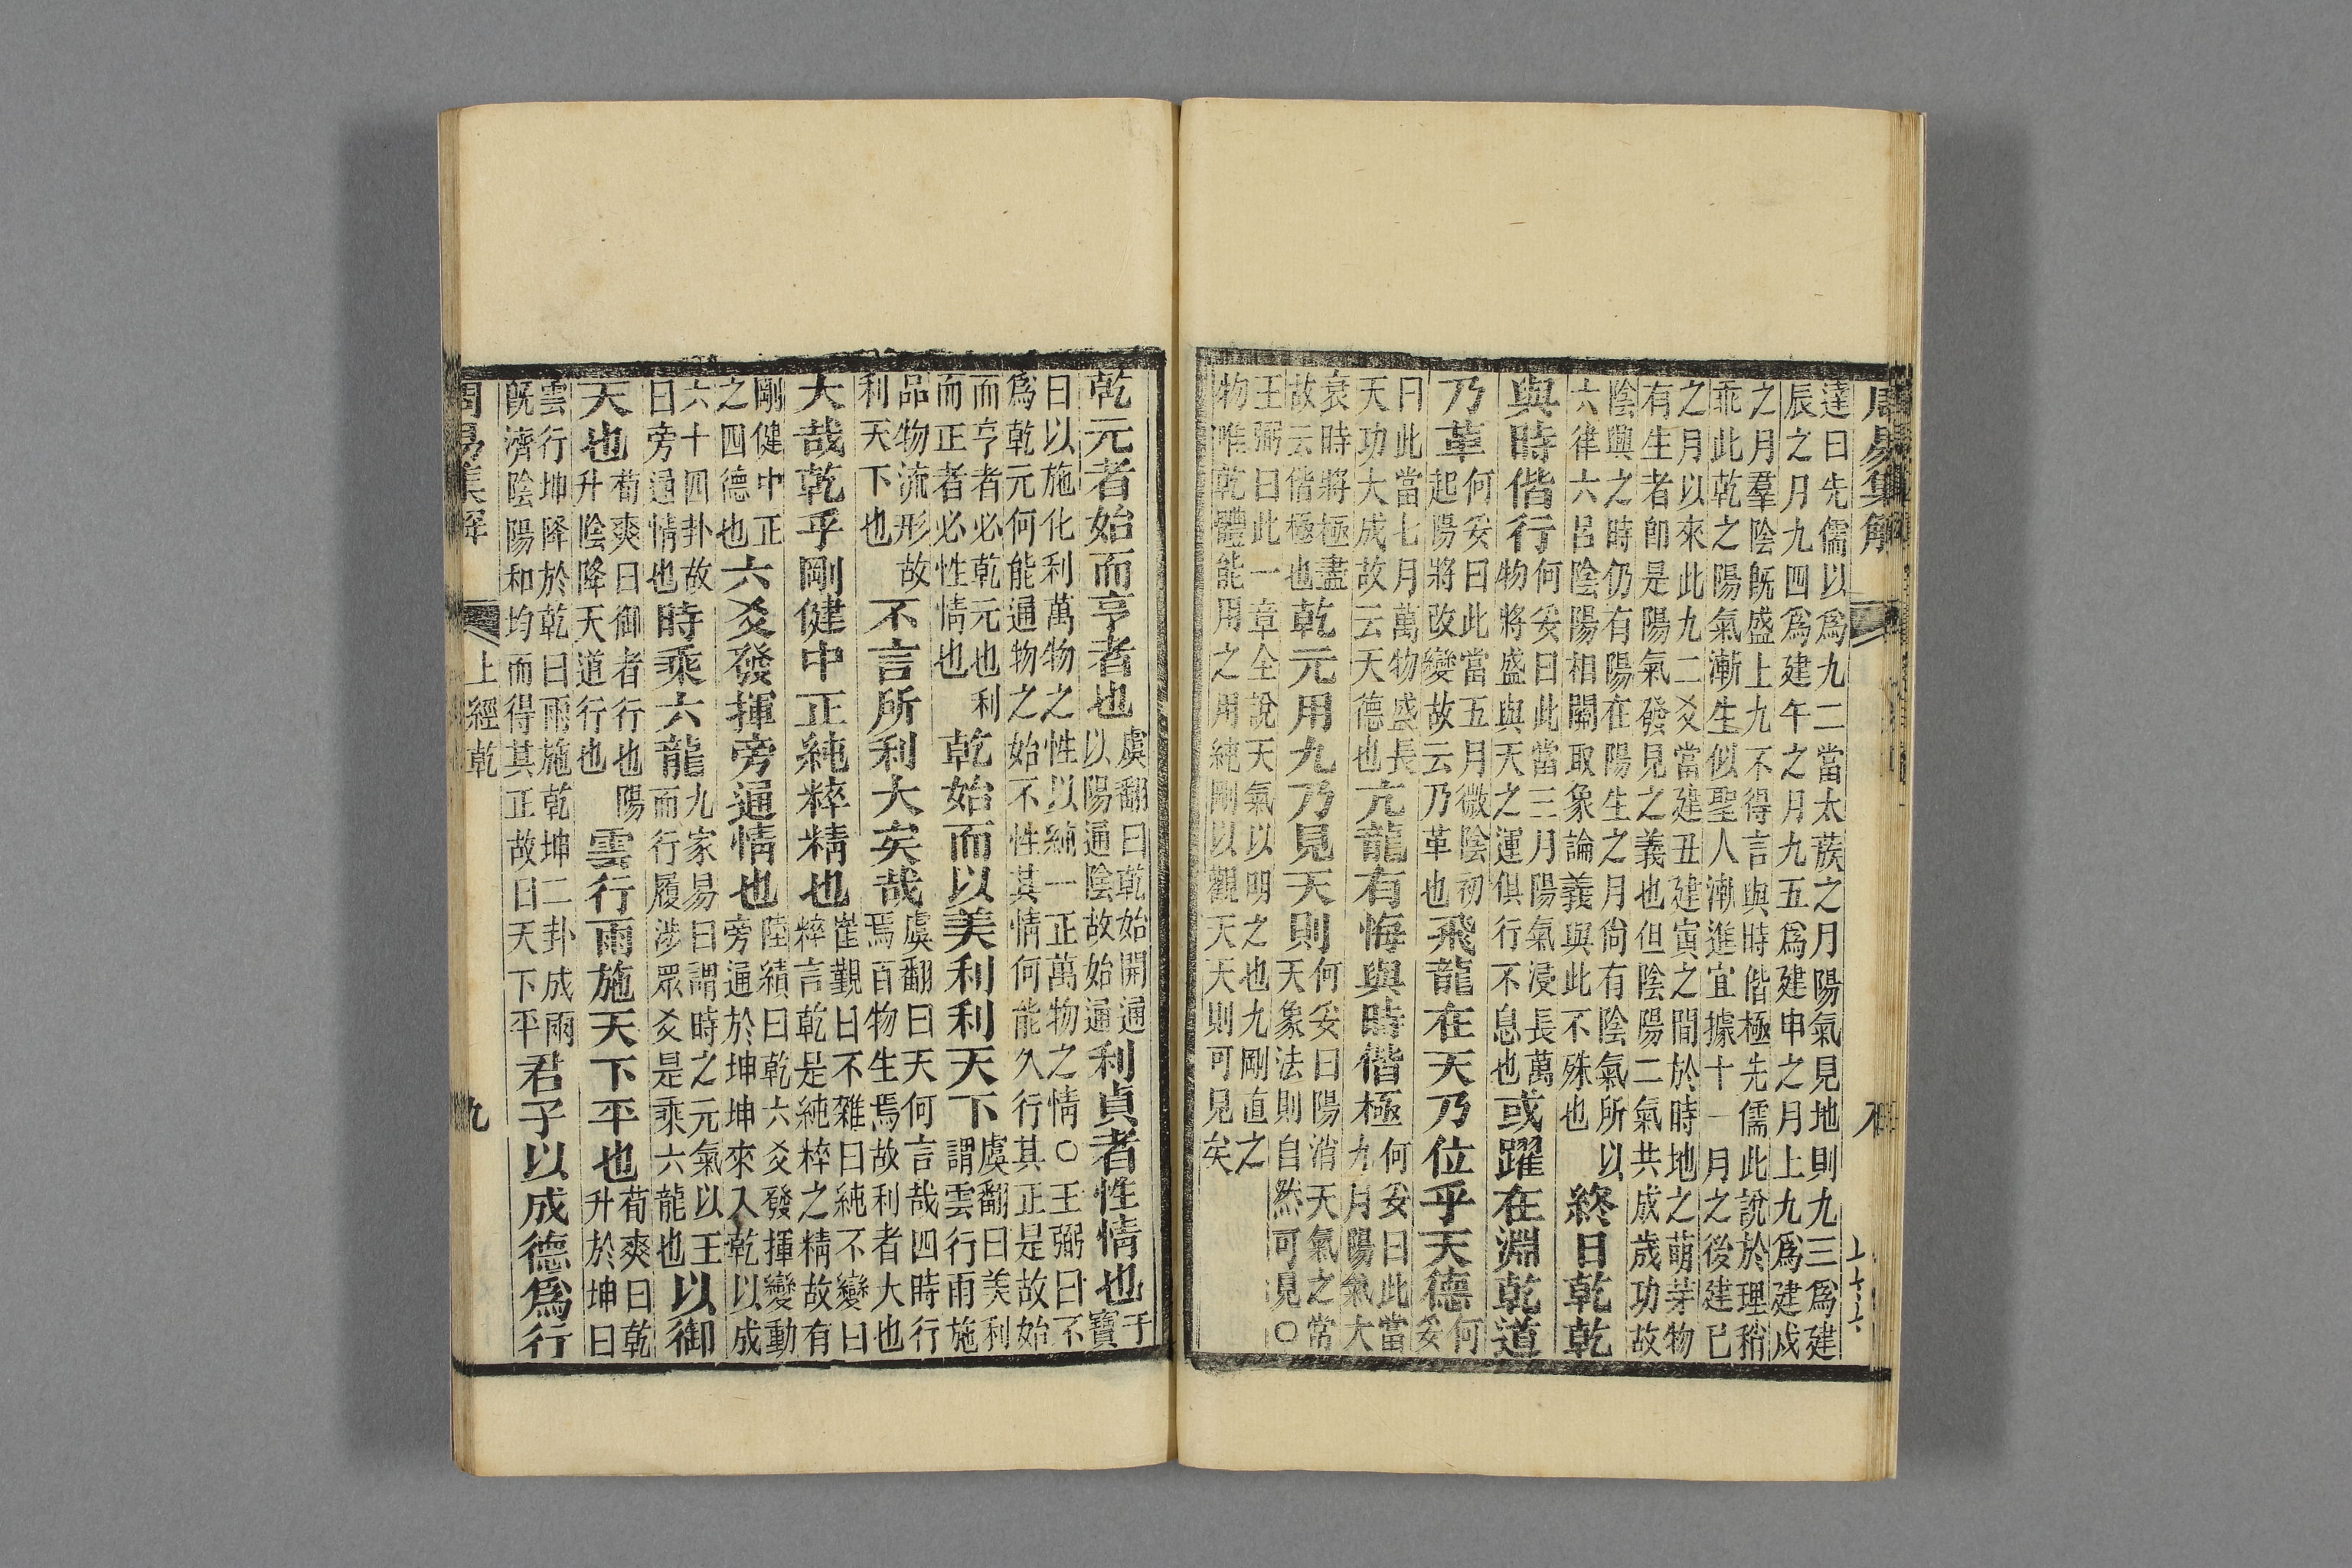 周易集解 八
達曰先儒以爲九二當太蔟之月陽氣見地則九三爲建
辰之月九四爲建午之月九五爲建申之月上九爲建戌
之月羣陰旣盛上九不得言與時偕極先儒此說於理稍
乖此乾之陽氣漸生似聖人漸進宜據十一月之後建巳
之月以來此九二爻當建丑建寅之間於時地之萌芽物
有生者卽是陽氣發見之義也但陰陽二氣共成歲功故
陰興之時仍有陽在陽生之月尙有陰氣所以六律六呂陰陽相關取象論義與此不殊也終日乾乾
與時偕行何妥曰此當三月陽氣浸長萬物將盛與天之運俱行不息也或躍在淵乾道
乃革何妥曰此當五月微陰初起陽將改變故云乃革也飛龍在天乃位乎天德何妥
曰此當七月萬物盛長天功大成故云天德也亢龍有悔與時偕極何妥曰此當九月陽氣大
衰時將極盡故云偕極也乾元用九乃見天則何妥曰陽消天氣之常天象法則自然可見○
王弼曰此一章全說天氣以明之也九剛直之
物唯乾體能用之用純剛以觀天天則可見矣
乾元者始而亨者也虞翻曰乾始開通以陽通陰故始通利貞者性情也干寶
曰以施化利萬物之性以純一正萬物之情○王弼曰不
爲乾元何能通物之始不性其情何能久行其正是故始
而亨者必乾元也利而正者必性情也乾始而以美利利天下虞翻曰美利謂雲行雨施
品物流形故利天下也不言所利大矣哉虞翻曰天何言哉四時行焉百物生焉故利者大也
大哉乾乎剛健中正純粹精也崔覲曰不雜曰純不變曰粹言乾是純粹之精故有
剛健中正之四德也六爻發揮旁通情也陸績曰乾六爻發揮變動旁通於坤坤來入乾以成
六十四卦故曰旁通情也時乘六龍九家易曰謂時之元氣以王而行履涉眾爻是乘六龍也以御
天也荀爽曰御者行也陽升陰降天道行也雲行雨施天下平也荀爽曰乾升於坤曰
雲行坤降於乾曰雨施乾坤二卦成兩旣濟陰陽和均而得其正故曰天下平君子以成德爲行
周易集解 上經乾 九